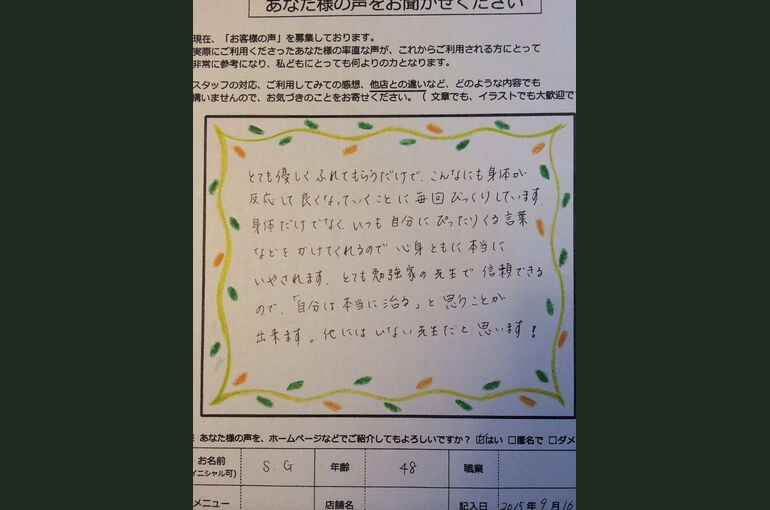 あなた様の声をお聞かせください
現在、「お客様の声」を募集しております。
実際にご利用くださったあなた様の率直な声が、これからご利用される方にとって
非常に参考になり、私どもにとっても何よりの力となります。
スタッフの対応、ご利用してみての感想、他店との違いなど、どのような内容でも
構いませんので、お気づきのことをお寄せください。(文章でも、イラストでも大歓迎で
とても優しくふれてもらうだけで、こんなにも身体が
反応して良くなっていくことに毎回びっくりしています。
身体だけでなく、いつも自分にぴったりくる言葉
などをかけてくれるので心身ともに本当に
いやされます。とても勉強家の先生で信頼できる
ので、「自分は本当に治る」と思うことが
出来ます。他にはいない先生だと思います!
あなた様の声を、ホームページなどでご紹介してもよろしいですか? ☑はい □匿名で □ダメ
お名前 S.G 年齢 48 職業
イニシャル可)
メニュー 店舗名 記入日 2015年9月16